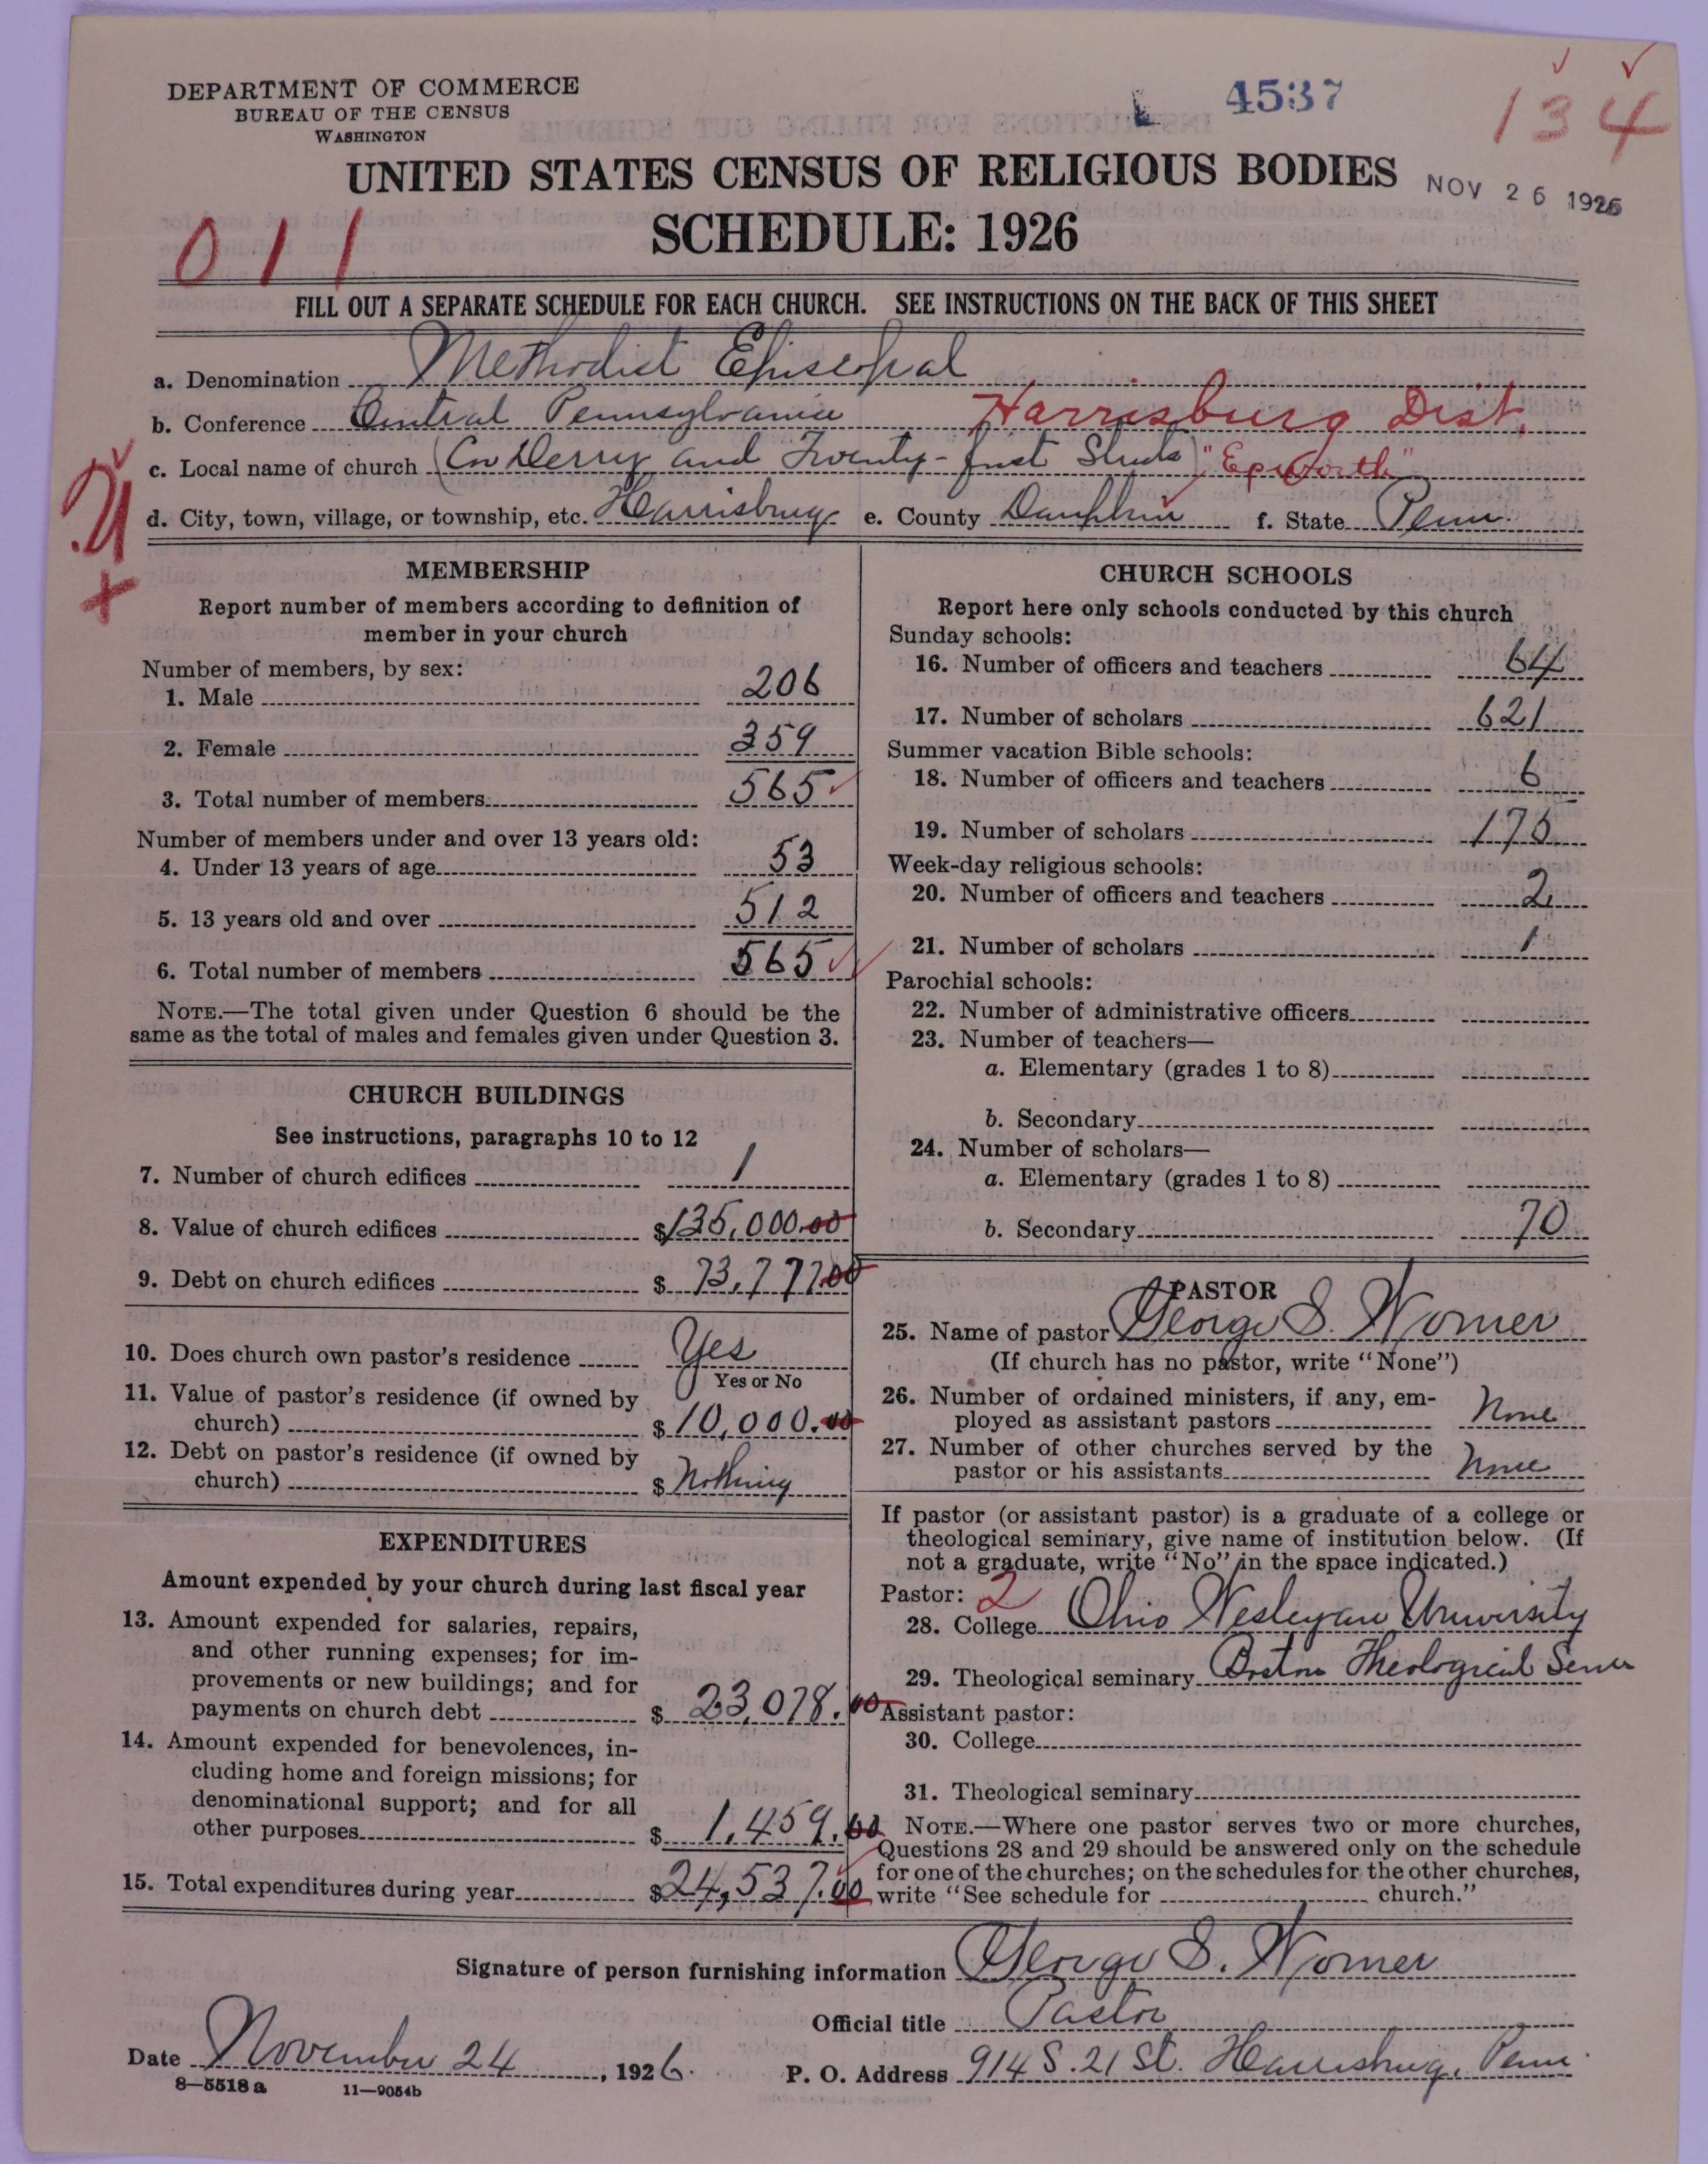 DEPARTMENT OF COMMERCE
BUREAU OF THE CENSUS
WASHINGTON
4537
134
UNITED STATES CENSUS OF RELIGIOUS BODIES
NOV 26 1926
SCHEDULE: 1926
011
FILL OUT A SEPARATE SCHEDULE FOR EACH CHURCH. SEE INSTRUCTIONS ON THE BACK OF THIS SHEET
a. Denomination Methodist Episcopal
b. Conference Central Pennsylvania Harrisburg Dist.
c. Local name of church (Cor Derry and Twenty-first Streets) "Epworth"
d. City, town, village, or township, etc. Harrisburg e. County Dauphin f. State Penn.
MEMBERSHIP
Report number of members according to definition of
member in your church
Number of members, by sex:
1. Male 206
2. Female 359
3. Total number of members 565
Number of members under and over 13 years old:
4. Under 13 years of age 53
5. 13 years old and over 512
6. Total number of members 565
NOTE.—The total given under Question 6 should be the
same as the total of males and females given under Question 3.
CHURCH BUILDINGS
See instructions, paragraphs 10 to 12
7. Number of church edifices 1
8. Value of church edifices $135,000.00
9. Debt on church edifices $73,777.00
10. Does church own pastor's residence Yes
Yes or No
11. Value of pastor's residence (if owned by
church) $10,000.00
12. Debt on pastor's residence (if owned by
church) $ Nothing
EXPENDITURES
Amount expended by your church during last fiscal year
13. Amount expended for salaries, repairs,
and other running expenses; for im-
provements or new buildings; and for
payments on church debt $ 23,078.00
14. Amount expended for benevolences, in-
cluding home and foreign missions; for
denominational support; and for all
other purposes $ 1,459.00
15. Total expenditures during year $24,537.00
CHURCH SCHOOLS
Report here only schools conducted by this church
Sunday schools:
16. Number of officers and teachers 64
17. Number of scholars 621
Summer vacation Bible schools:
18. Number of officers and teachers 6
19. Number of scholars
Week-day religious schools:
20. Number of officers and teachers 2
21. Number of scholars 1
Parochial schools:
22. Number of administrative officers
23. Number of teachers—
a. Elementary (grades 1 to 8)
b. Secondary
24. Number of scholars—
a. Elementary (grades 1 to 8)
b. Secondary 70
PASTOR
25. Name of pastor George S. Womer
(If church has no pastor, write "None")
26. Number of ordained ministers, if any, em-
ployed as assistant pastors None
27. Number of other churches served by the
pastor or his assistants None
If pastor (or assistant pastor) is a graduate of a college or
theological seminary, give name of institution below. (If
not a graduate, write "No" in the space indicated.)
Pastor: 2
28. College Ohio Wesleyan University
29. Theological seminary Boston Theological
Assistant pastor:
30. College
31. Theological seminary
NOTE.—Where one pastor serves two or more churches,
Questions 28 and 29 should be answered only on the schedule
for one of the churches; on the schedules for the other churches,
write "See schedule for church."
Signature of person furnishing information George S. Womer
Official title Pastor
Date November 24, 1926.
P. O. Address 914 S. 21 St. Harrisburg, Penn.
8—5518 a 11—9054b